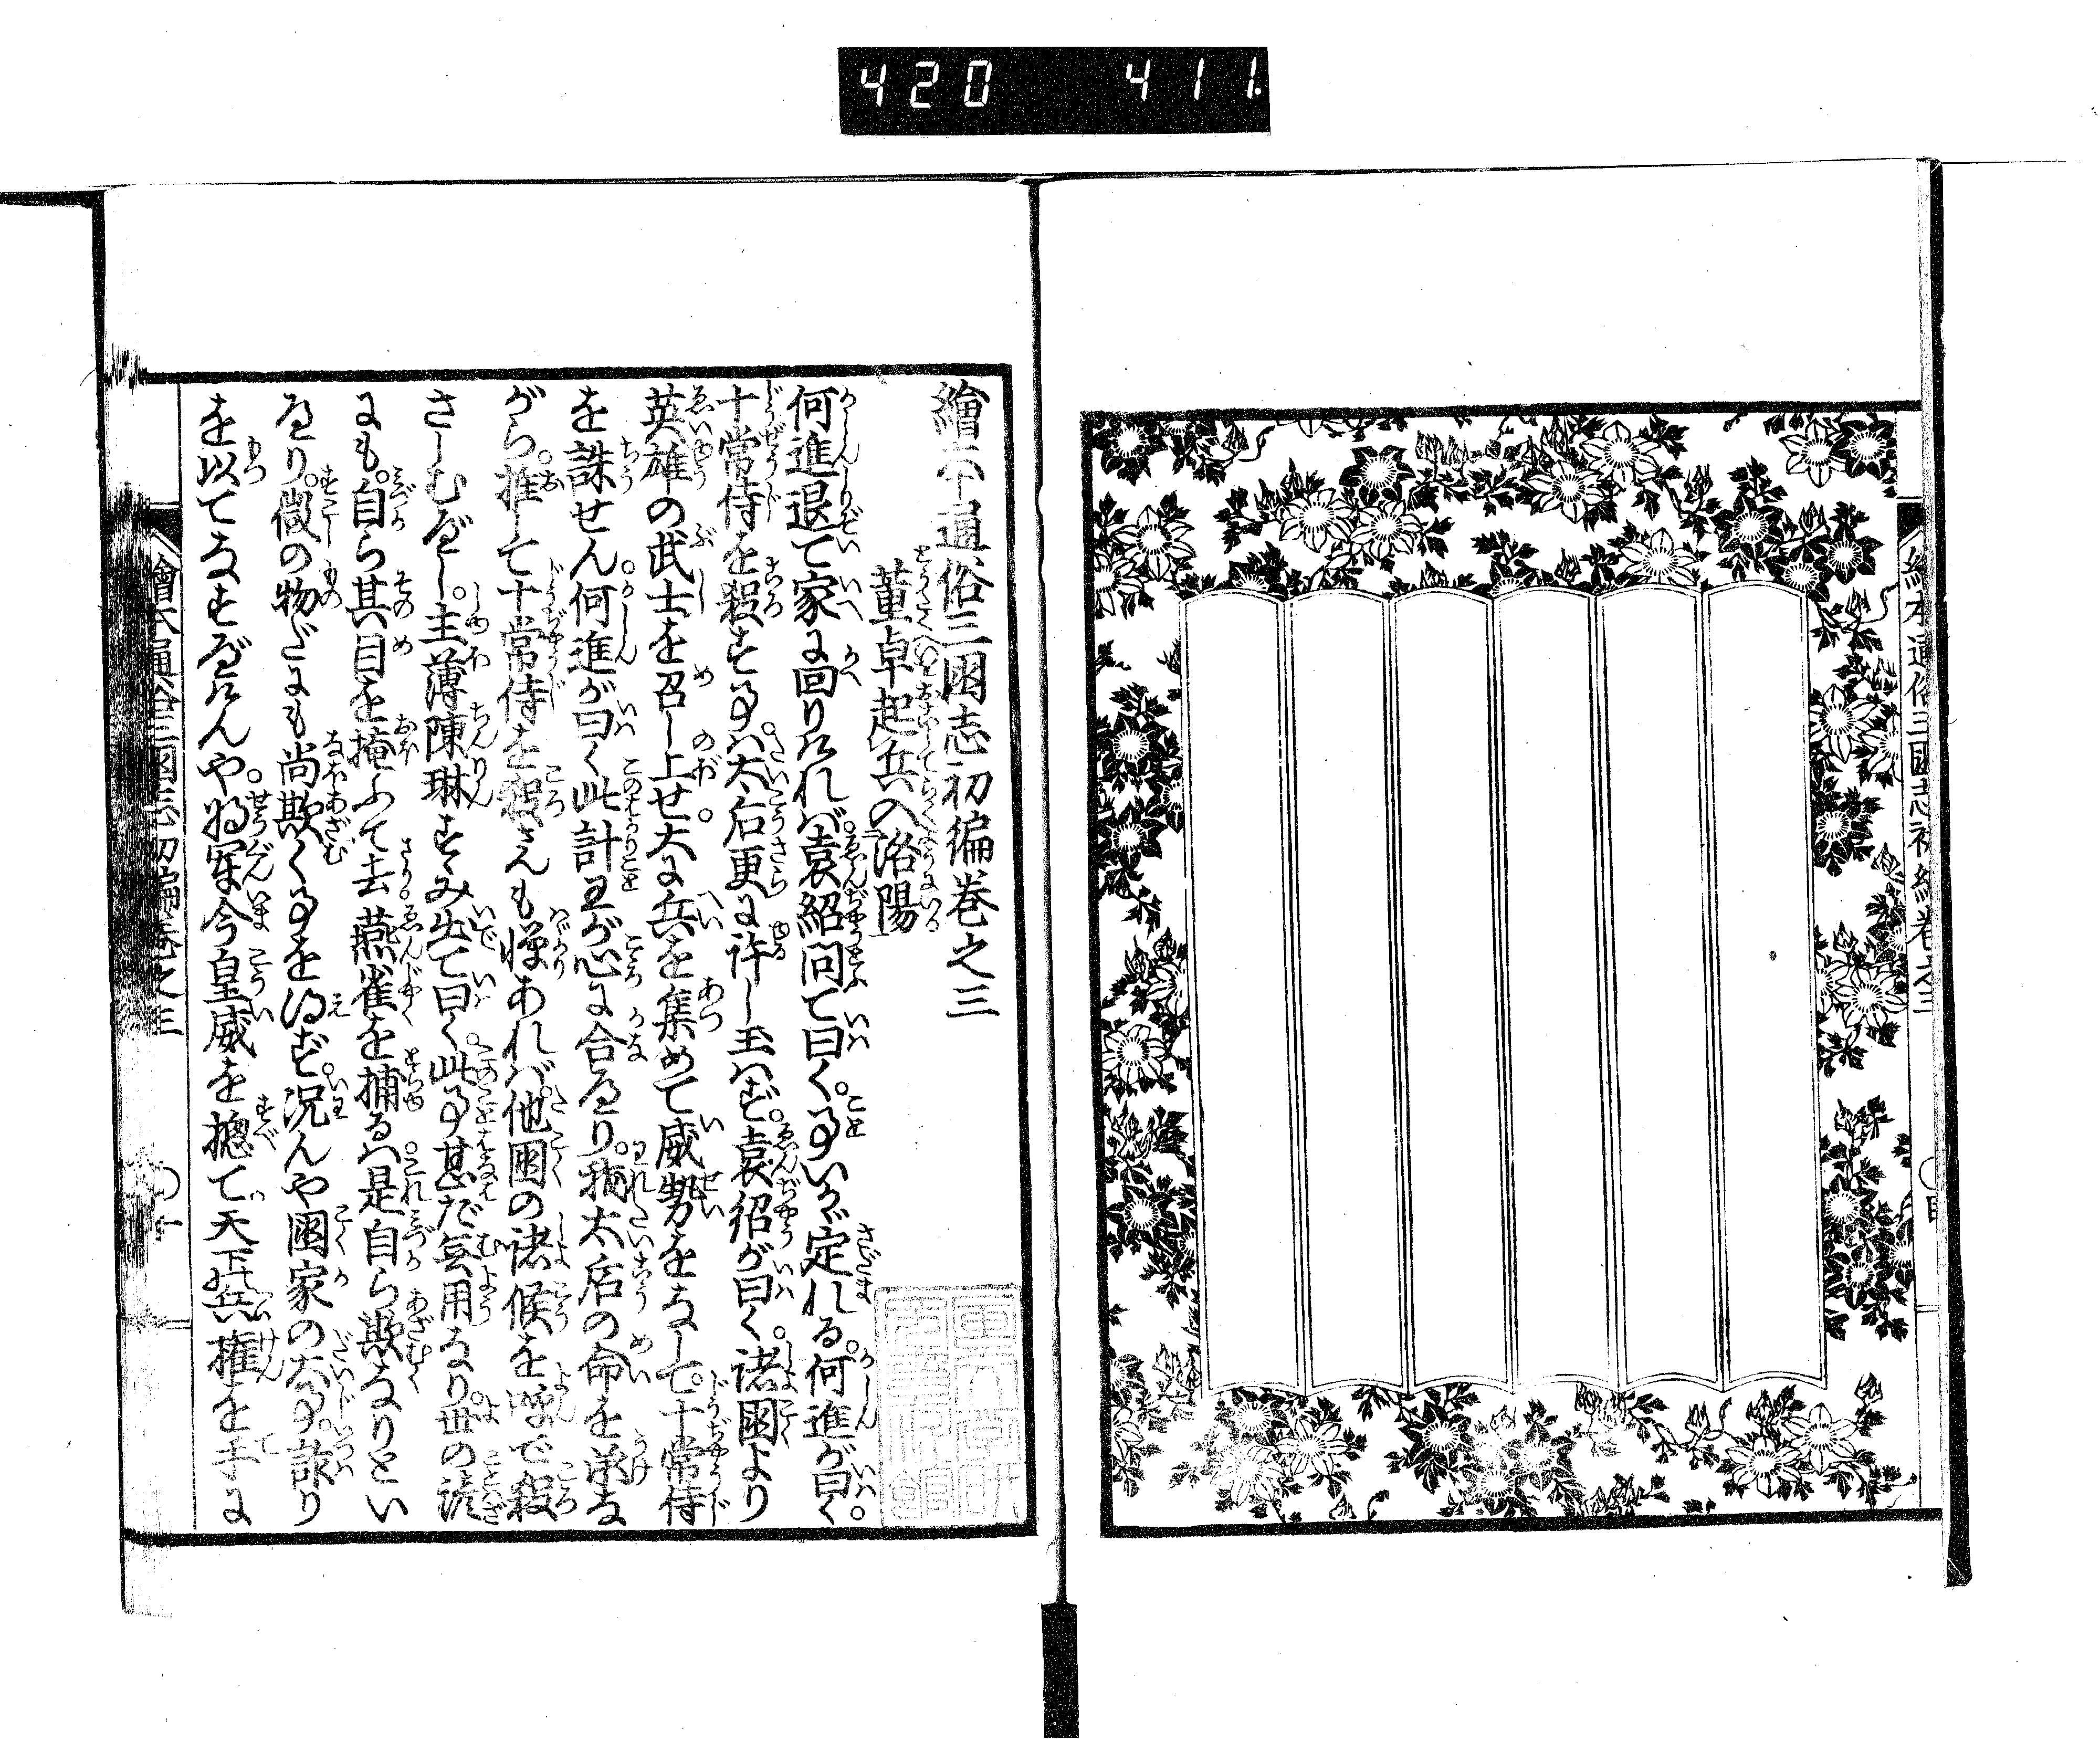 420 411.
繪本通俗三國志初編卷之三
繪本通俗三國志初編卷之三
董卓起兵入洛陽
何進退て家に回りければ。袁紹問て曰く。事いかゞ定れる。何進が曰く。
十常侍を殺する事は。太后更に許し玉はず。袁紹が曰く。諸國より
英雄の武士を召し上せ。大に兵を集めて威勢をなして。十常侍
を誅せん。何進が曰く此計畧が心に合へり。我太后の命を承な
がら。推して十常侍を殺さんも憚あれば。他國の諸候を呼で殺
さしむべし。主薄陳琳すゝみ出て曰く。此事甚だ無用なり。世の諺
にも。自ら其目を掩ふて去。燕雀を捕るは。是自ら欺なりとい
へり。微の物だにも尚欺くことを得ず。況んや國家の大事。詐り
を以てなすべけんや。将軍今皇威を摠て。天下の兵權を手に
繪本通俗三國志初編卷之三